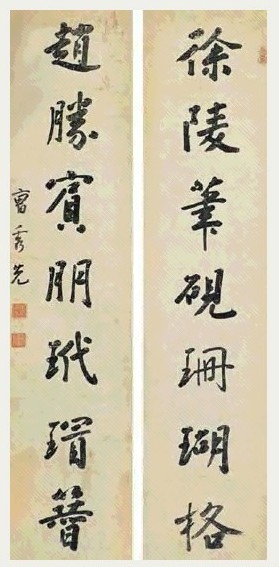 徐陵筆硯珊瑚格
趙勝賓朋玳瑁簪
曹秀先